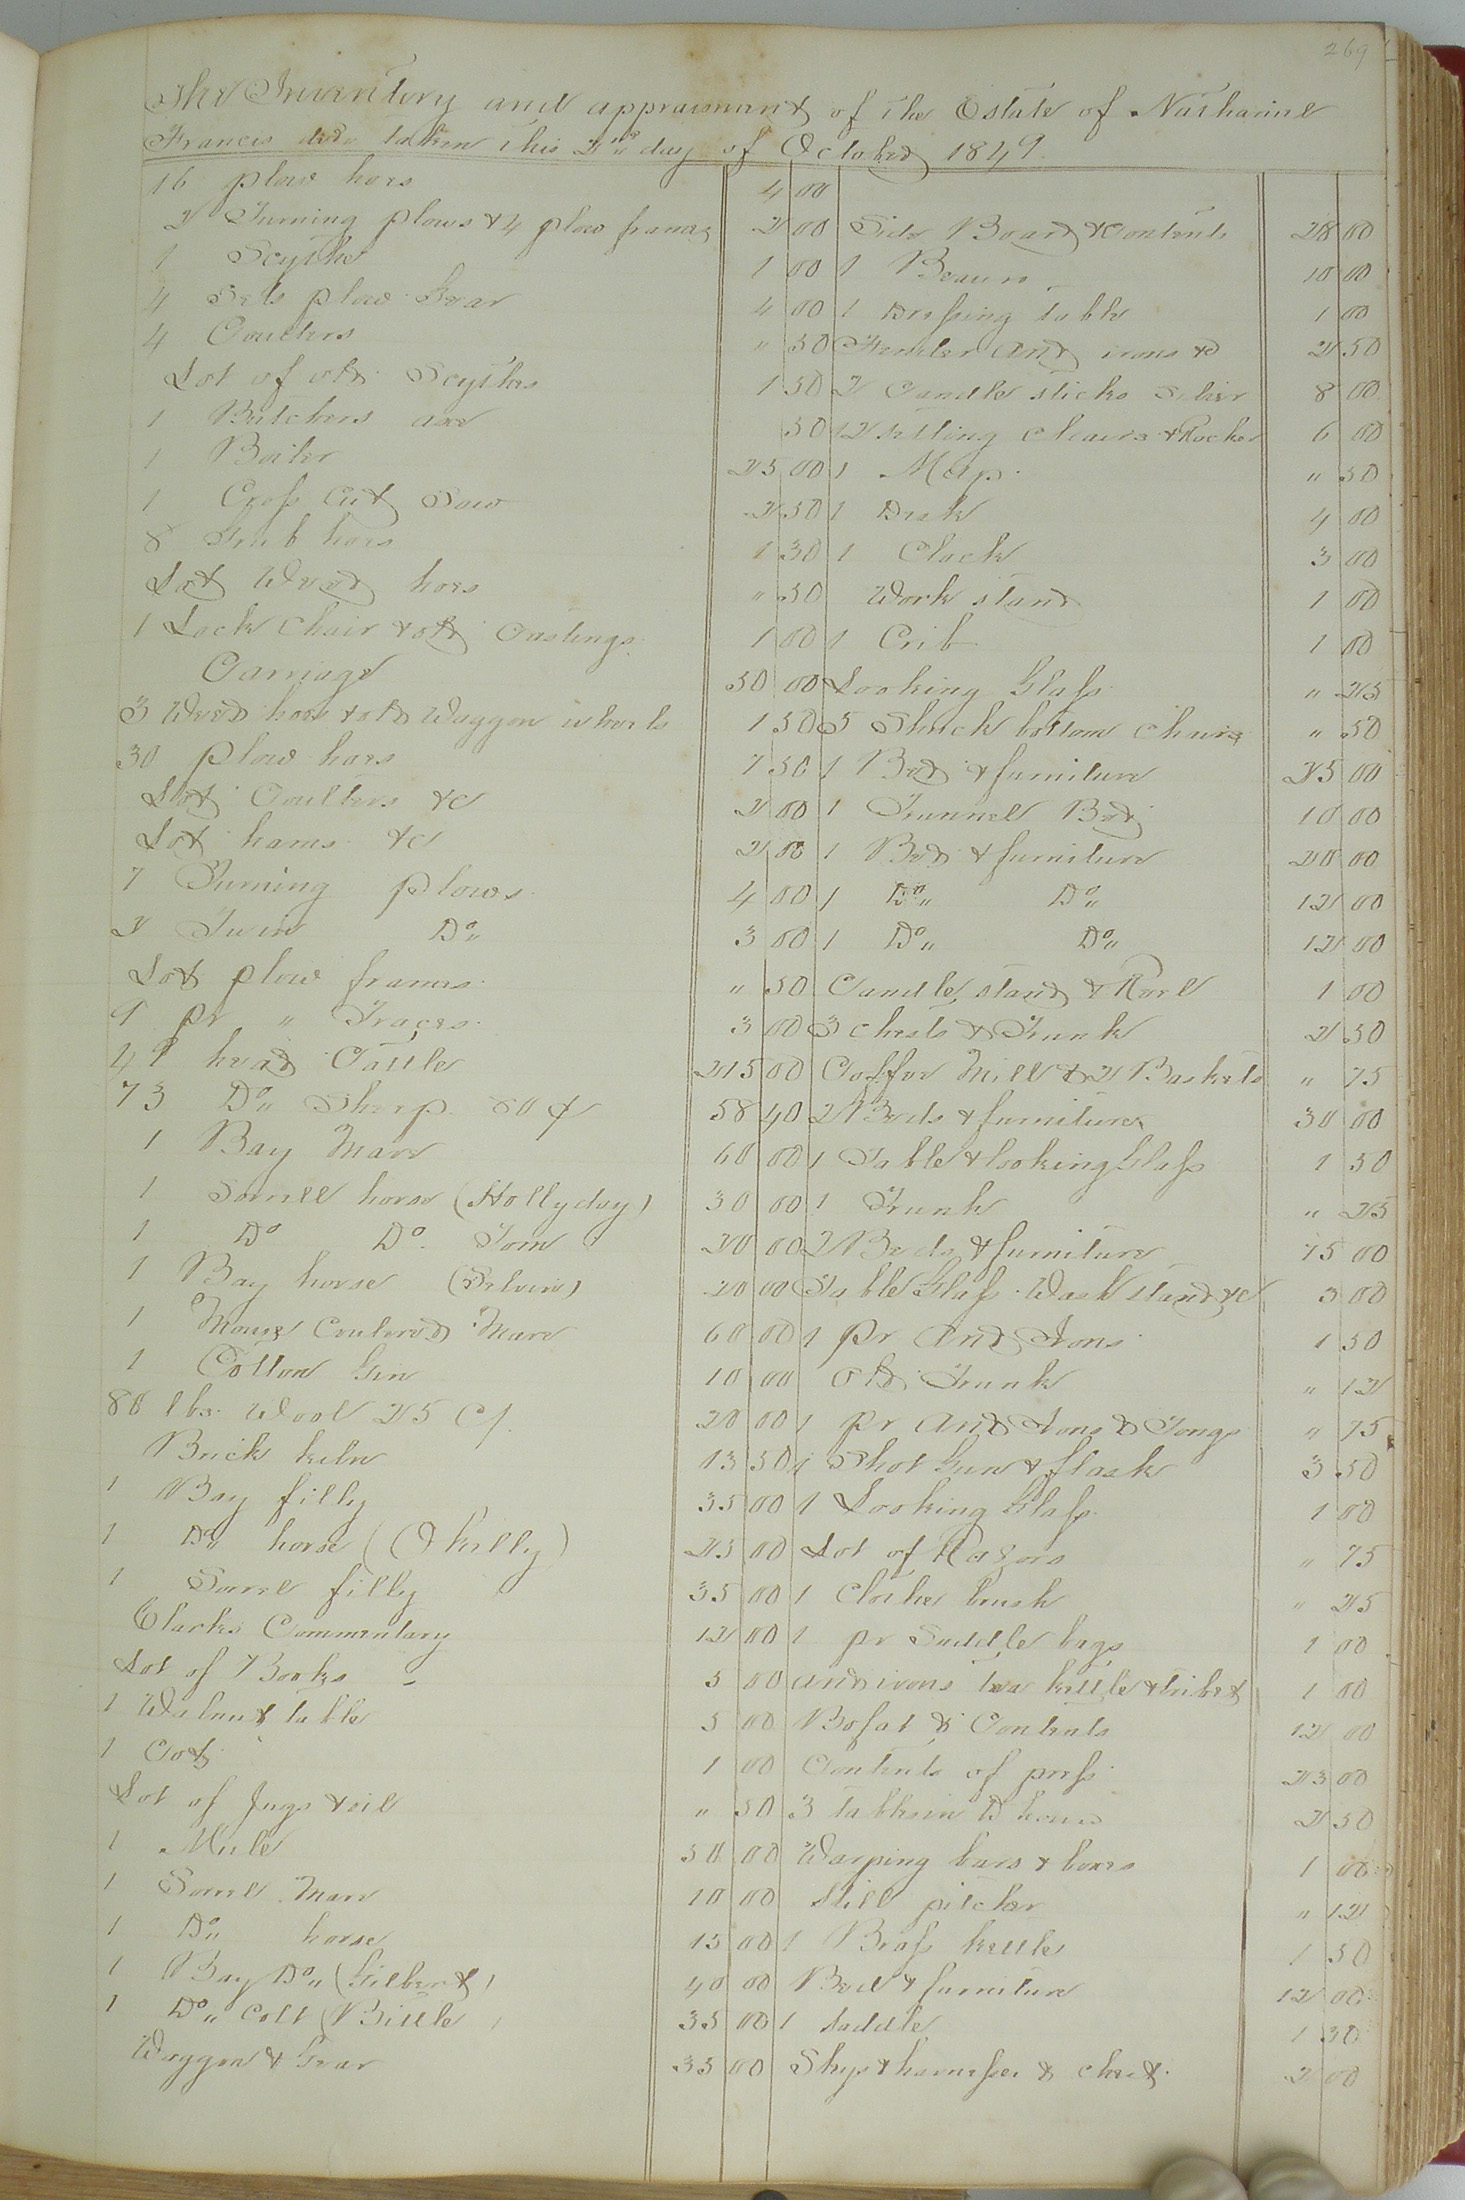 269
The Inventory and appraisment of the Estate of Nathaniel
Francis decd. taken this 2nd day of October 1849.
16 plow hoes 4 00
2 Turning plows & 4 plow frames 2 00
1 Scythe 1 00
4 Sets plow Gear 4 00
4 Coulters " 50
Lot of old Scythes 1 50
1 Butchers axe 50
1 Boiler 25 00
1 Cross Cut Saw 2 50
8 Grub hoes 1 30
Lot Weed hoes " 50
1 Lock Chair & old Castings 1 00
Carriage 50 00
3 Weed hoes & old Waggon wheels 1 50
30 plow hoes 7 50
Lot Coulters &c 2 00
Lot hams &c 2 00
7 Turning plows 4 00
2 Twin Do,, 3 00
Lot plow frames " 50
9 pr " Traces 3 00
49 head Cattle 215 00
73 Do,, Sheep 80 ¢ 58 40
1 Bay Mare 60 00
1 Sorrell horse (Hollyday) 30 00
1 Do Do. Tom 20 00
1 Bay horse (Selvin) 20 00
1 Mouse Coulered Mare 60 00
1 Cotton Gin 10 00
80 lbs. Wool 25 C/. 20 00
Brick kiln 13 50
1 Bay filly 35 00
1 Do,, horse 25 00
1 Sorrel filly 35 00
Clarks Commentary 12 00
Lot of Books 5 00
1 Walnut table 5 00
1 Cot 1 00
Lot of Jugs & oil " 50
1 Mule 50 00
1 Sorrel Mare 10 00
1 Do,, horse 15 00
1 Bay Do,, (Gilbert) 40 00
1 Do,, Colt (Bittle) 35 00
Waggon & Gear 35 00
Side Board & Contents 28 00
1 Beauro 10 00
1 Dressing table 1 00
Fender And irons &c 2 50
2 Candle sticks Silver 8 00
12 setting chairs & Rocker 6 00
1 Map " 50
1 Desk 4 00
1 Clock 3 00
Work stand 1 00
1 Crib 1 00
Looking Glass " 25
5 Shuck bottom chairs " 50
1 Bed & furniture 25 00
1 Trunnel Bed 10 00
1 Bed & furniture 20 00
1 Do,, Do,, 12 00
1 Do,, Do,, 12 00
Candle stand & Reel 1 00
3 chests & Trunk 2 50
Coffee Mill & 2 Baskets " 75
2 Beds & furniture 30 00
1 Table & looking Glass 1 50
1 Trunk " 25
2 Beds & furniture 75 00
Table Glass Wash stand &c 3 00
1 pr And Irons 1 50
Old Trunk " 12
1 pr And Irons & Tongs " 75
1 Shot Gun & flask 3 50
1 Looking Glass 1 00
Lot of Razors " 75
1 Clothes brush " 25
1 pr Saddle bags 1 00
And irons tea kettle & tribet 1 00
Bofat & Contents 12 00
Contents of press 23 00
3 tables in D house 2 50
Warping bars & boxes 1 00
Still pitcher " 12
1 Brass kettle 1 50
Bed & furniture 12 00
1 Saddle 1 50
Slays & harnesses & chest 2 00